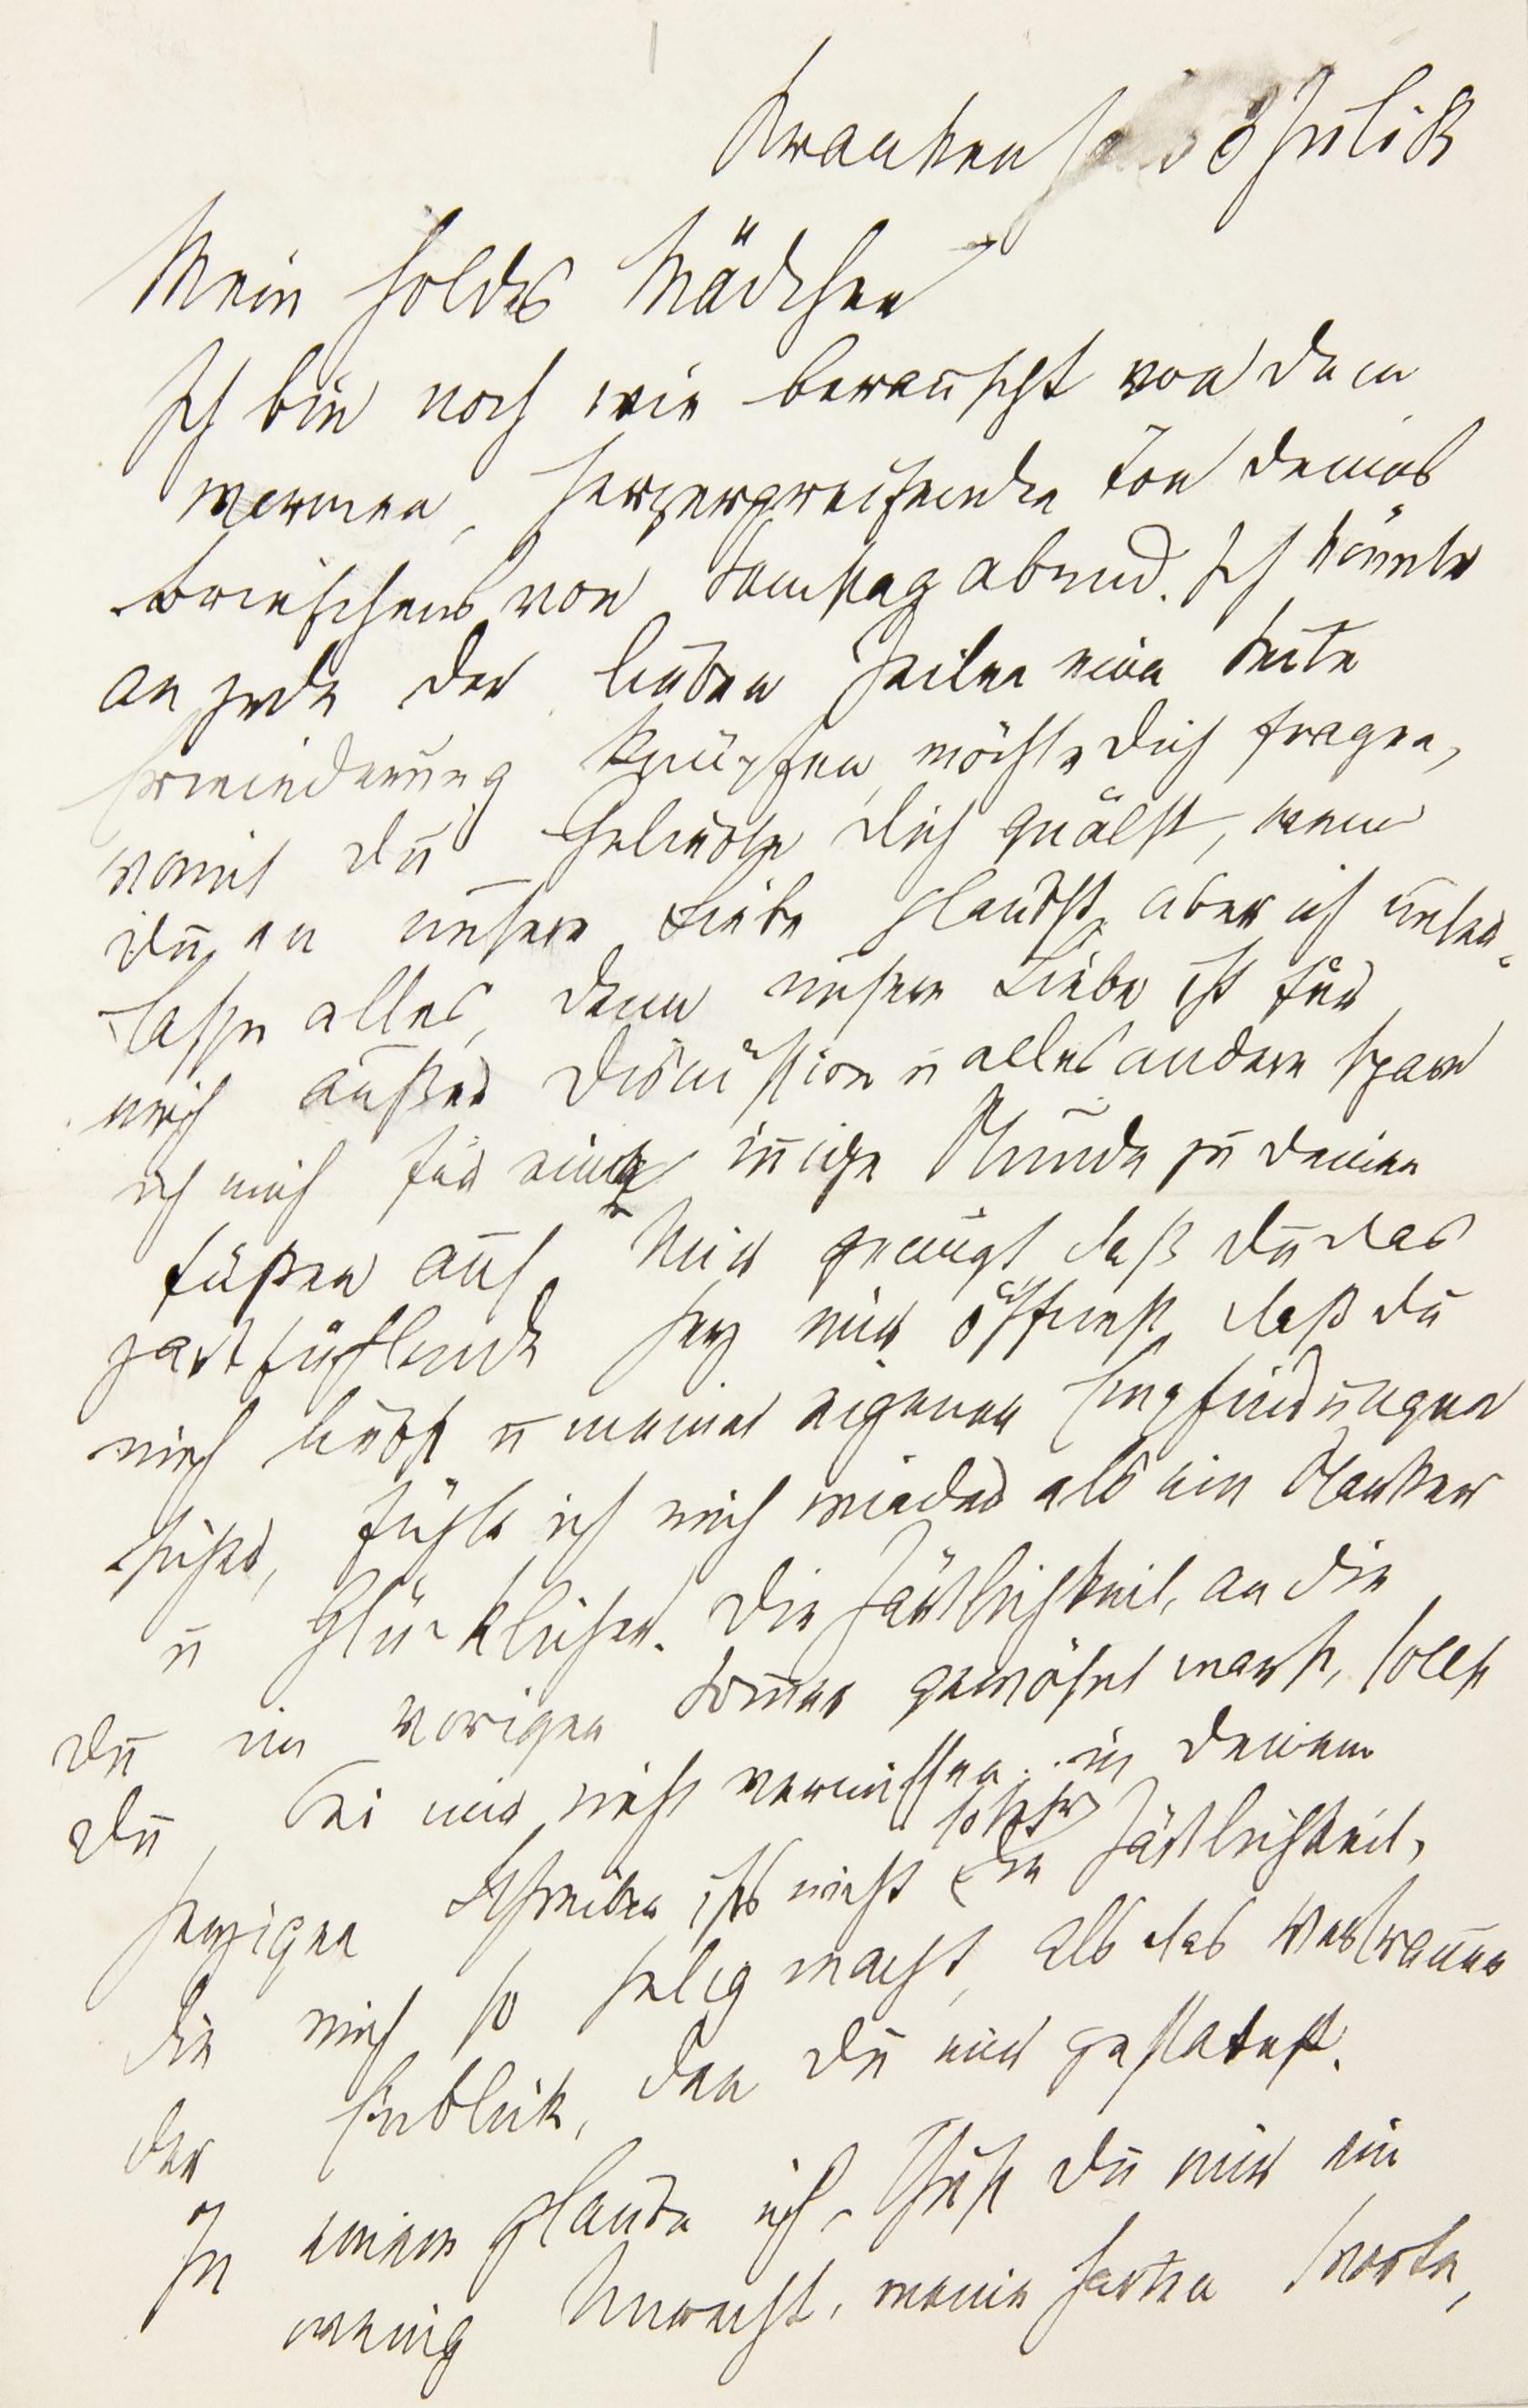 Krankenhaus 8 Juli 83
Mein holdes Mädchen
Ich bin noch wie berauscht von dem
warmen, herzergreifenden Ton deines
Briefchens von Samstag abend. Ich könnte
an jede der lieben Zeilen eine Seite
Erwiederung knüpfen, möchte dich fragen,
womit du Geliebte dich quälst, wenn
du an unsere Liebe glaubst, aber ich unter-
lasse alles, denn unsere Liebe ist für
mich außer Diskussion u alles andere spare
ich mir für eine innige Stunde zu deinen
Füßen auf. Mir genügt daß du das
zartfühlende Herz mir öffnest, daß du
mich liebst u meiner eigenen Empfindungen
sicher, fühle ich mich wieder als ein Starker
u Glücklicher. Die Zärtlichkeit, an die
du im vorigen Sommer gewöhnt warst, sollst
du bei mir nicht vermissen. in deinem
herzigen Schreiben ists nicht so sehr die Zärtlichkeit,
die mich so selig macht, als das Vertrauen
der Einblick, den du mir gestattest.
In einem glaube ich, thust du mir ein
wenig Unrecht, meine harten Worte,